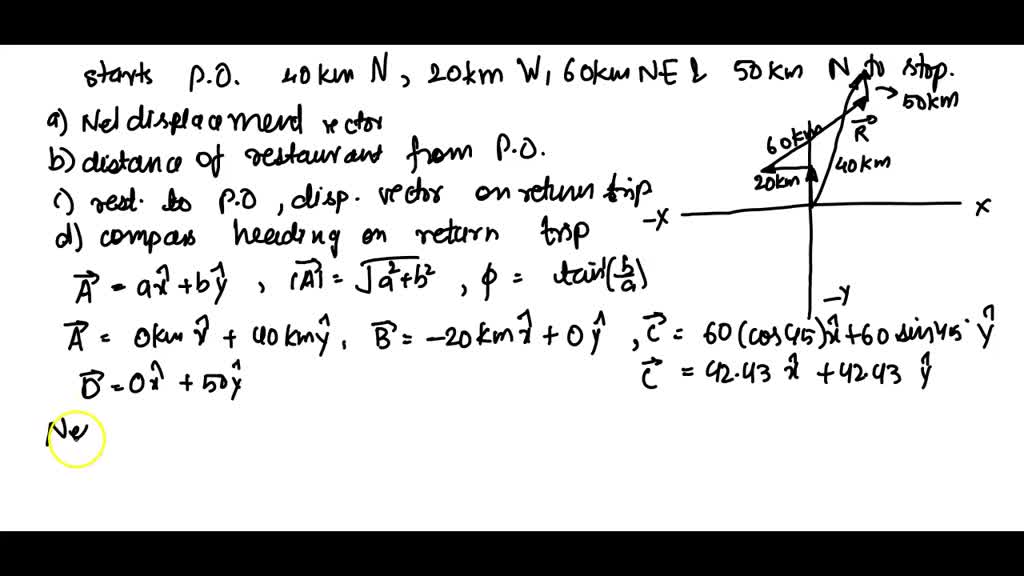 starts P.O. 40km N, 20km W, 60km NE & 50km N to stop.
a) Net displacement vector
b) distance of restaurant from P.O.
c) rest. to P.O, disp. vector on return trip
d) compass heading on return trip
50km
R⃗
60km
40km
20km
-X
X
-Y
A⃗ = ax̂ + bŷ , |A⃗| = √(a²+b²) , φ = tan⁻¹(b/a)
A⃗ = 0km x̂ + 40kmŷ, B⃗ = -20km x̂ + 0ŷ , C⃗ = 60(cos45)x̂+60 sin45° ŷ
D⃗ = 0x̂ + 50ŷ
C⃗ = 42.43 x̂ + 42.43 ŷ
Ne